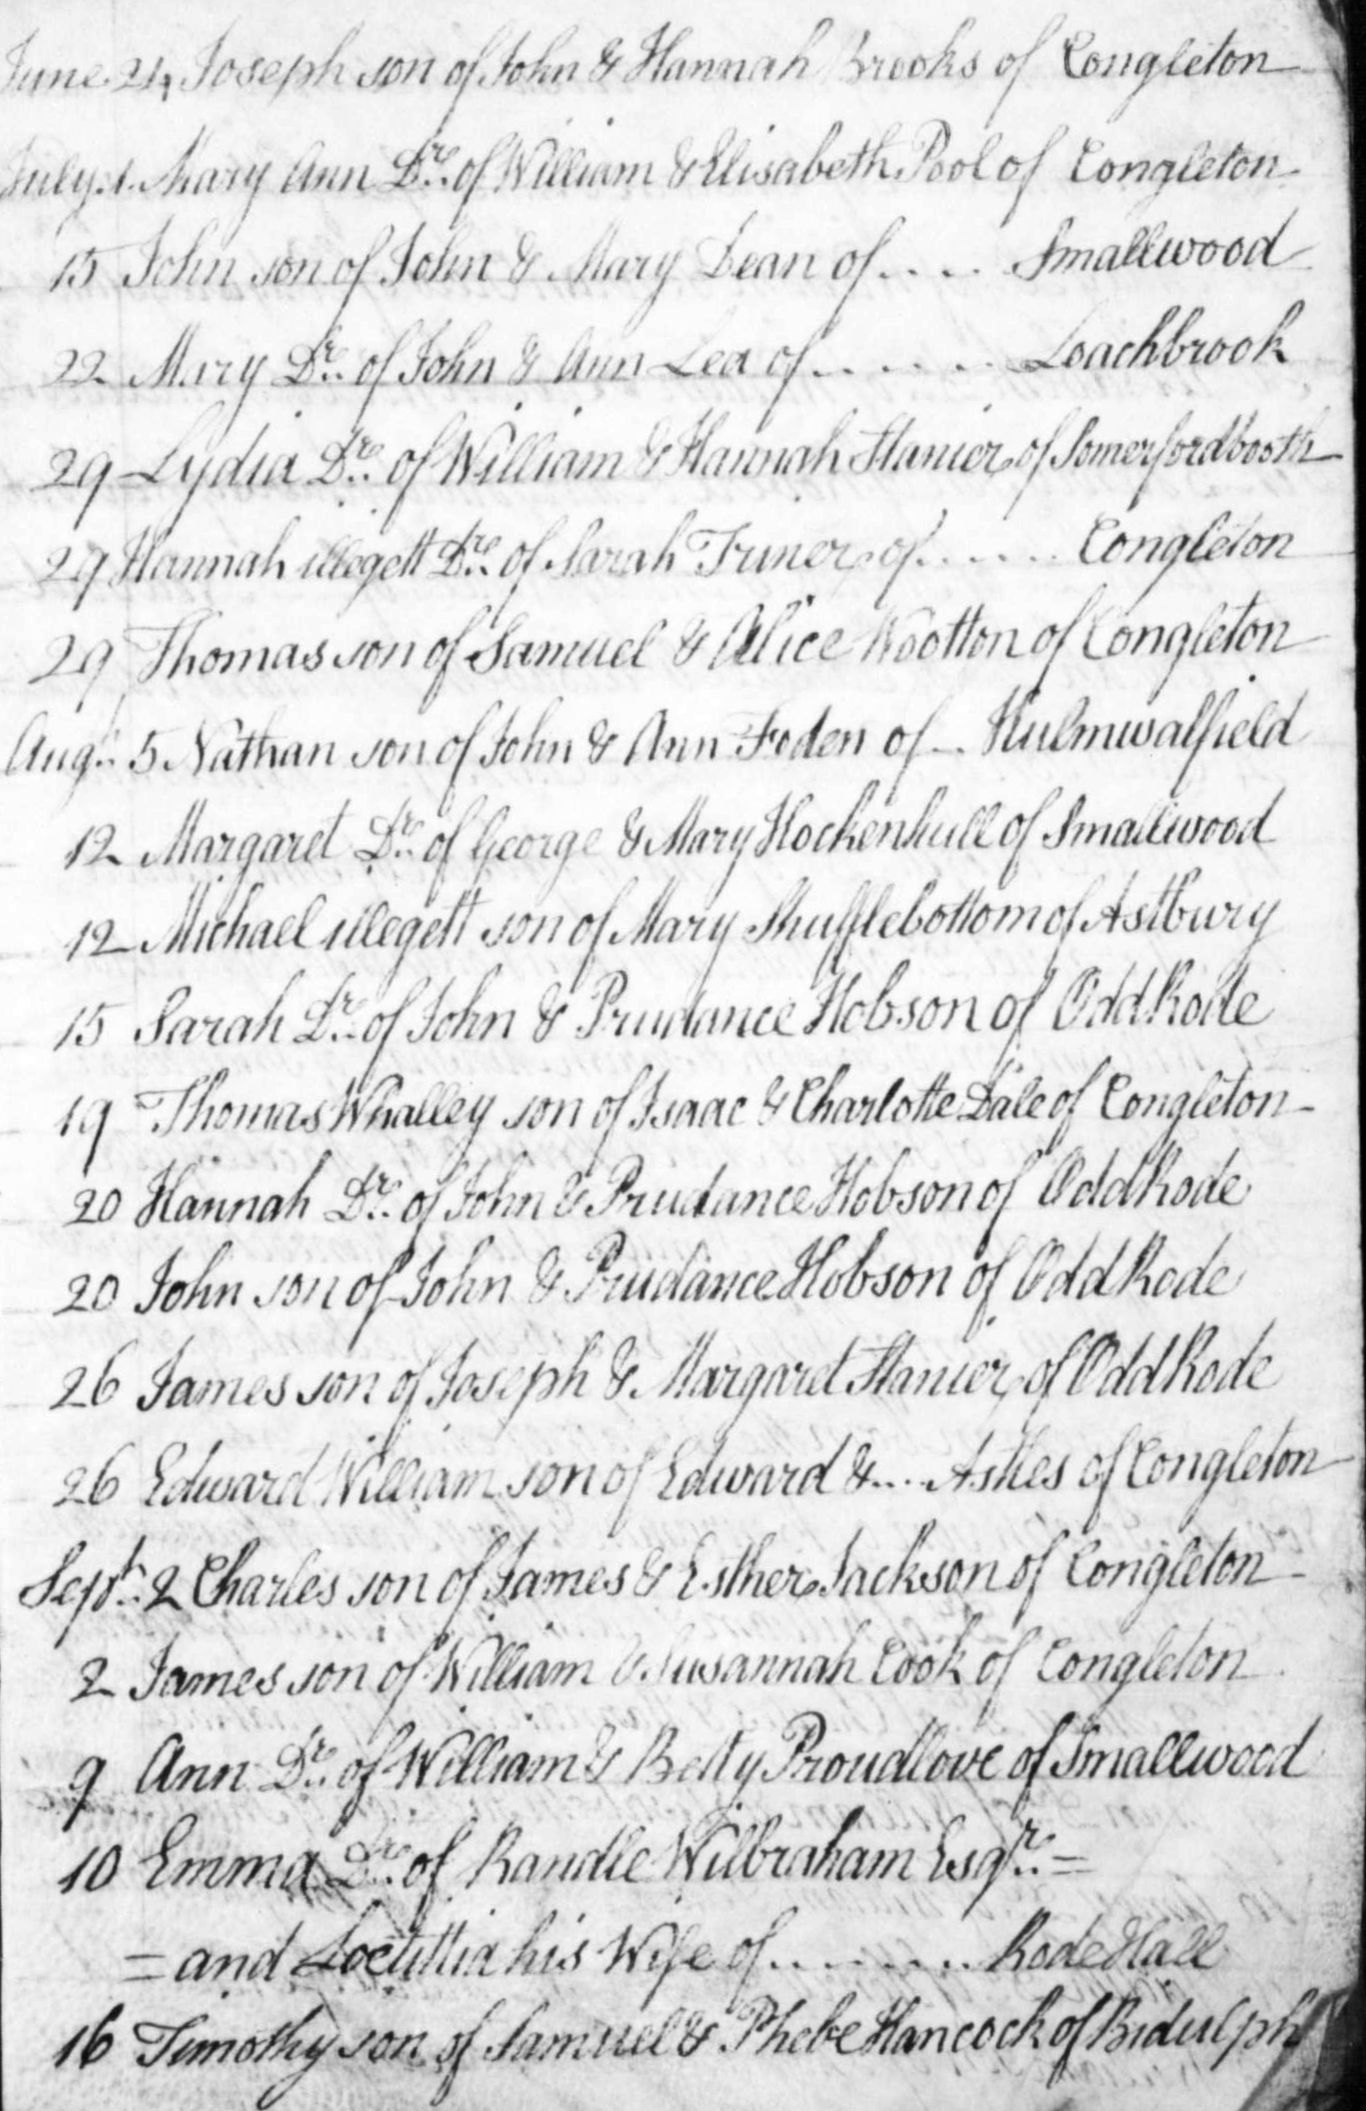 June 24 Joseph son of John & Hannah Brooks of Congleton
July 1. Mary Ann Dr. of William & Elisabeth Pool of Congleton
15 John son of John & Mary Dean of .... Smallwood
22 Mary Dr. of John & Ann Lea of ...... Loachbrook
29 Lydia Dr. of William & Hannah Stanier of Somerfordbooth
29 Hannah illegett Dr. of Sarah Triner of ..... Congleton
29 Thomas son of Samuel & Alice Wootton of Congleton
Augt. 5 Nathan son of John & Ann Foden of .. Hulmwalfield
12 Margaret Dr. of George & Mary Hockenhull of Smallwood
12 Michael illegett son of Mary Shufflebottom of Astbury
15 Sarah Dr. of John & Prudance Hobson of Odd Rode
19 Thomas Whalley son of Isaac & Charlotte Dale of Congleton
20 Hannah Dr. of John & Prudance Hobson of Odd Rode
20 John son of John & Prudance Hobson of Odd Rode
26 James son of Joseph & Margaret Stanier of Odd Rode
26 Edward William son of Edward & .... Astles of Congleton
Septr. 2 Charles son of James & Esther Jackson of Congleton
2 James son of William & Susannah Cook of Congleton
9 Ann Dr. of William & Betty Proudlove of Smallwood
10 Emma Dr. of Randle Wilbraham Esqr. =
= and his Wife of ....... Rode Hall
16 Timothy son of Samuel & Phebe Hancock of Bidulph